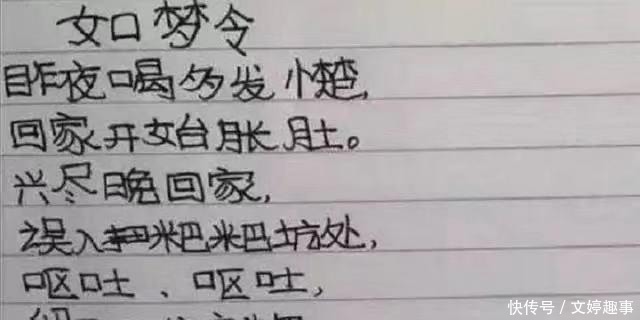 如梦令
昨夜喝多发憷,
回家开始胀肚。
兴尽晚回家,
误入粑粑坊处,
呕吐、呕吐,
快传号 / 文婷趣事